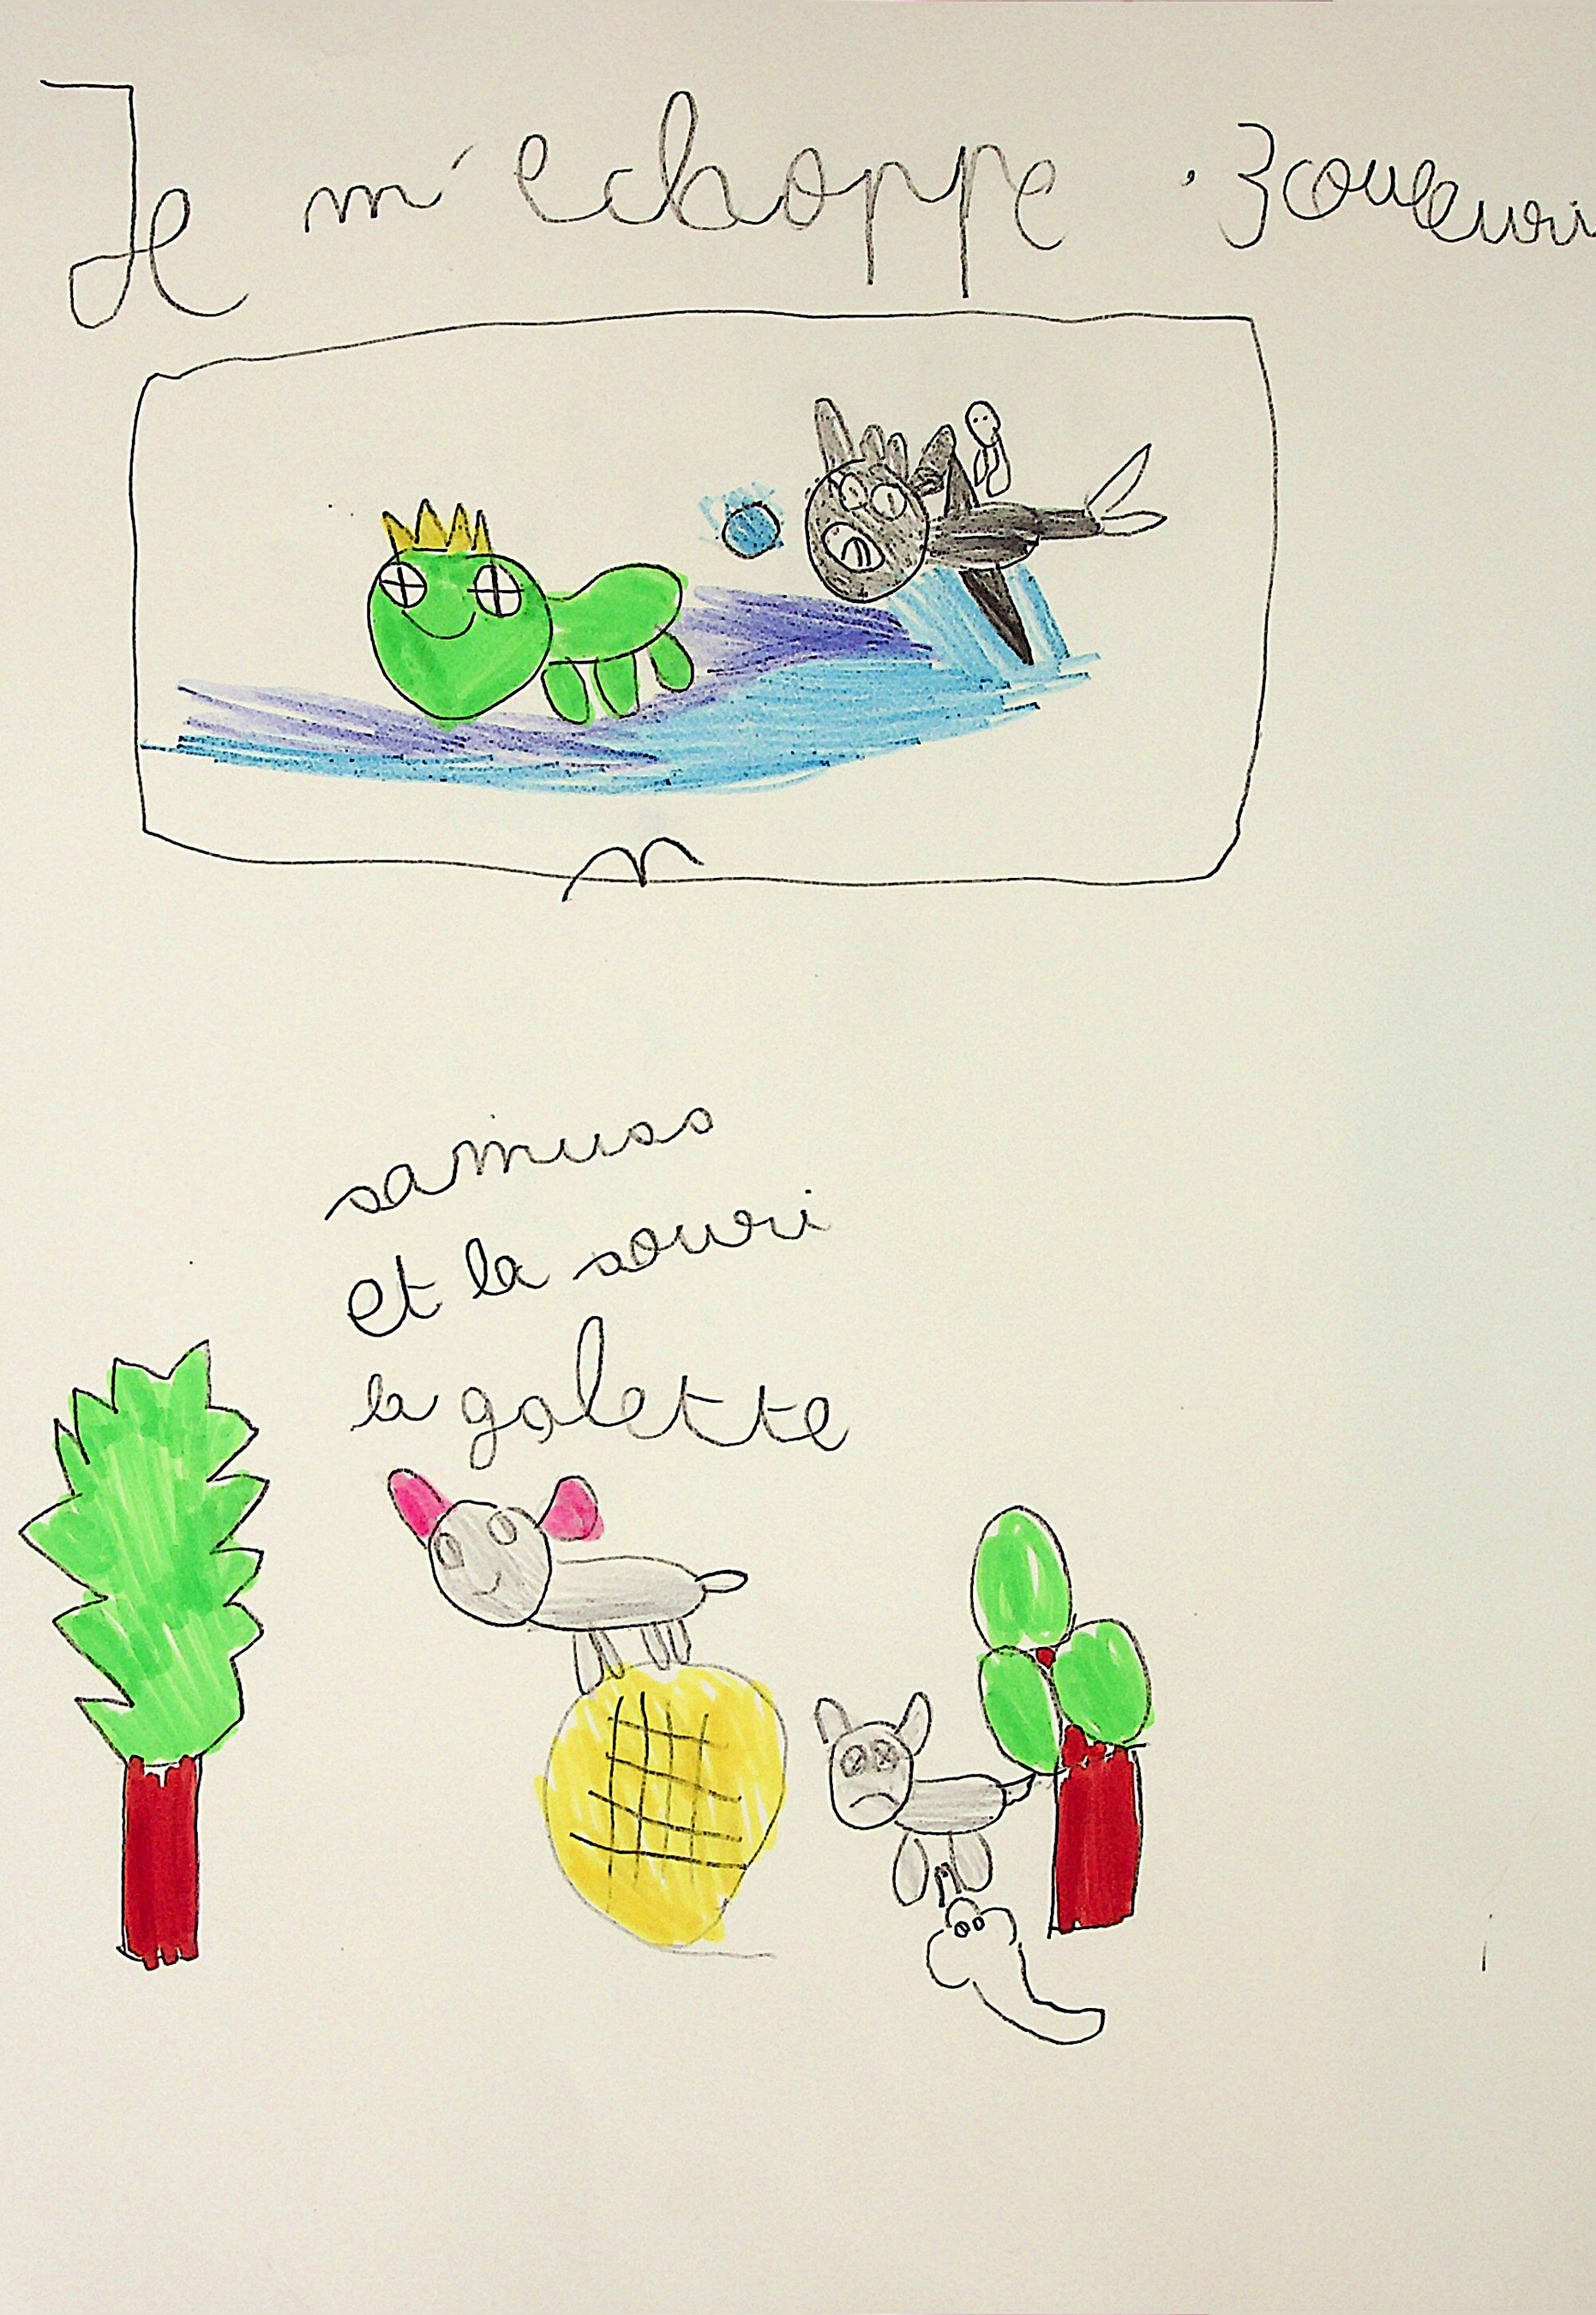 Je m'echappe . 3 couleuri
samuss
et la souri
la galette